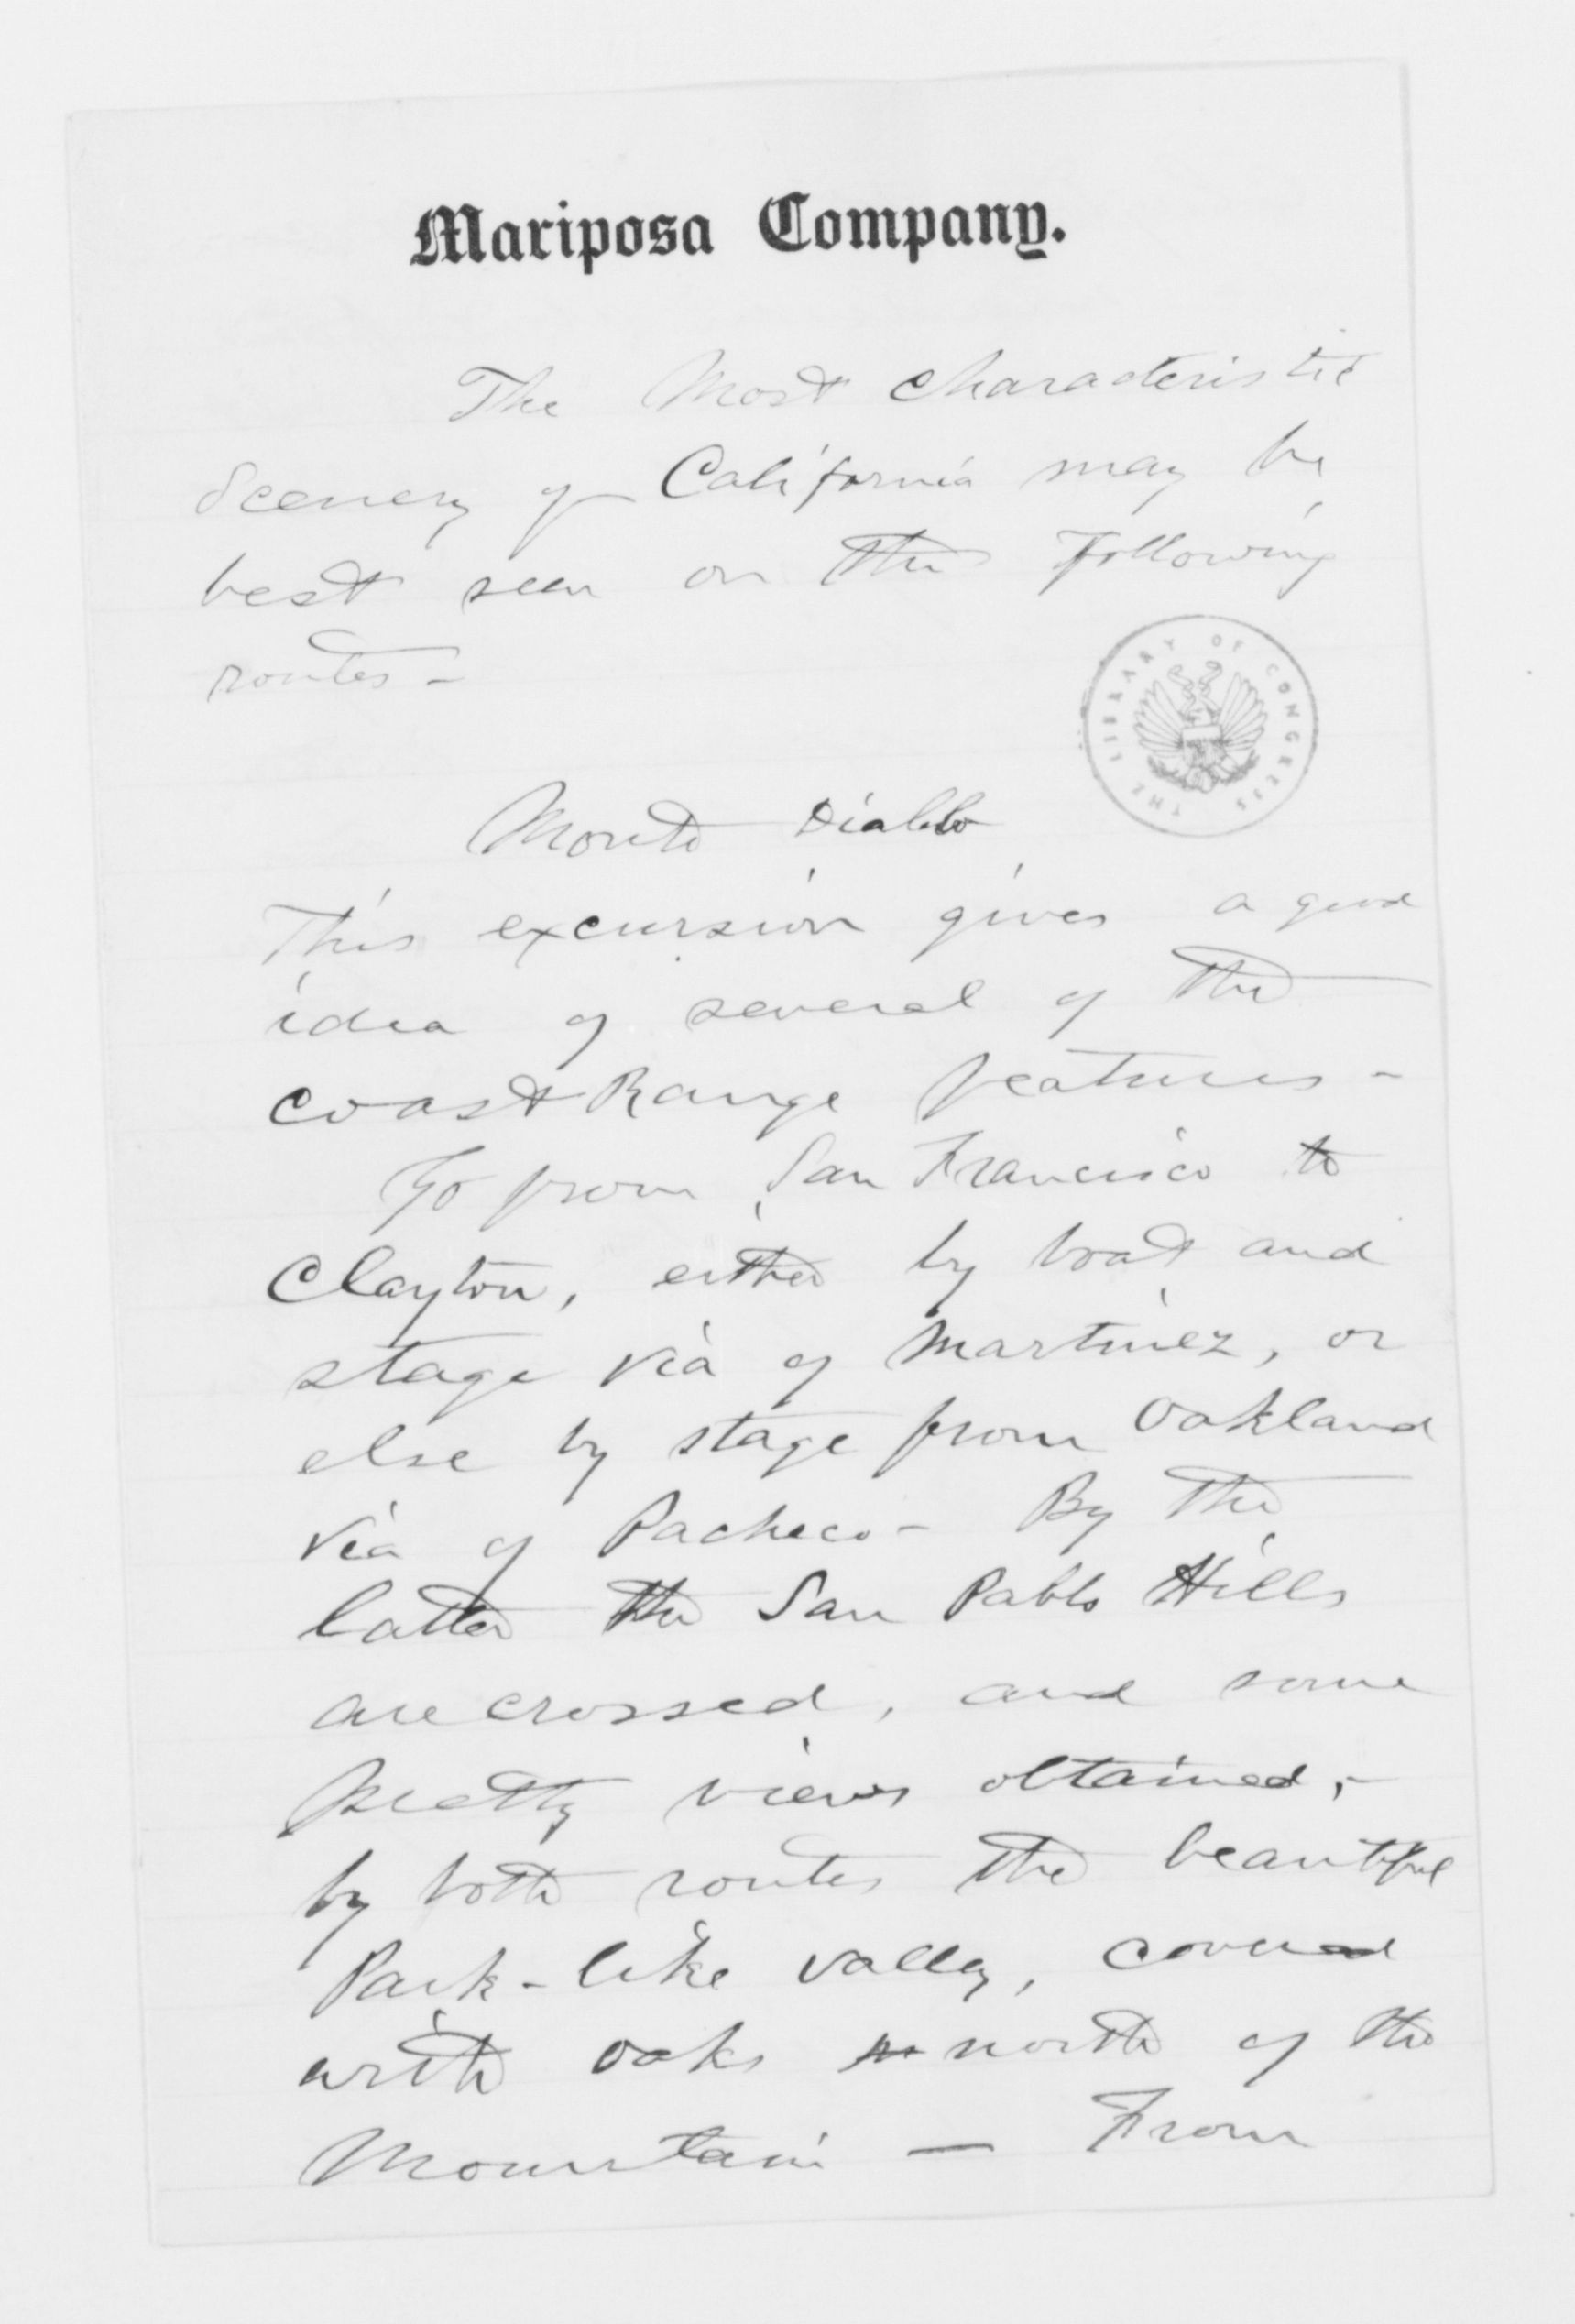 Mariposa Company.
The Most characteristic
Scenery of California may be
best seen on the following
routes -
THE LIBRARY OF CONGRESS
Monte Diablo
This excursion gives a good
idea of several of the
coast Range features -
Go from San Francisco to
Clayton, either by boat and
stage via of Martinez, or
else by stage from Oakland
via of Pacheco - By the
latter the San Pablo Hills
are crossed, and some
pretty views obtained, -
by both routes the beautiful
Park-like valley, covered
with oaks north of the
Mountain — From